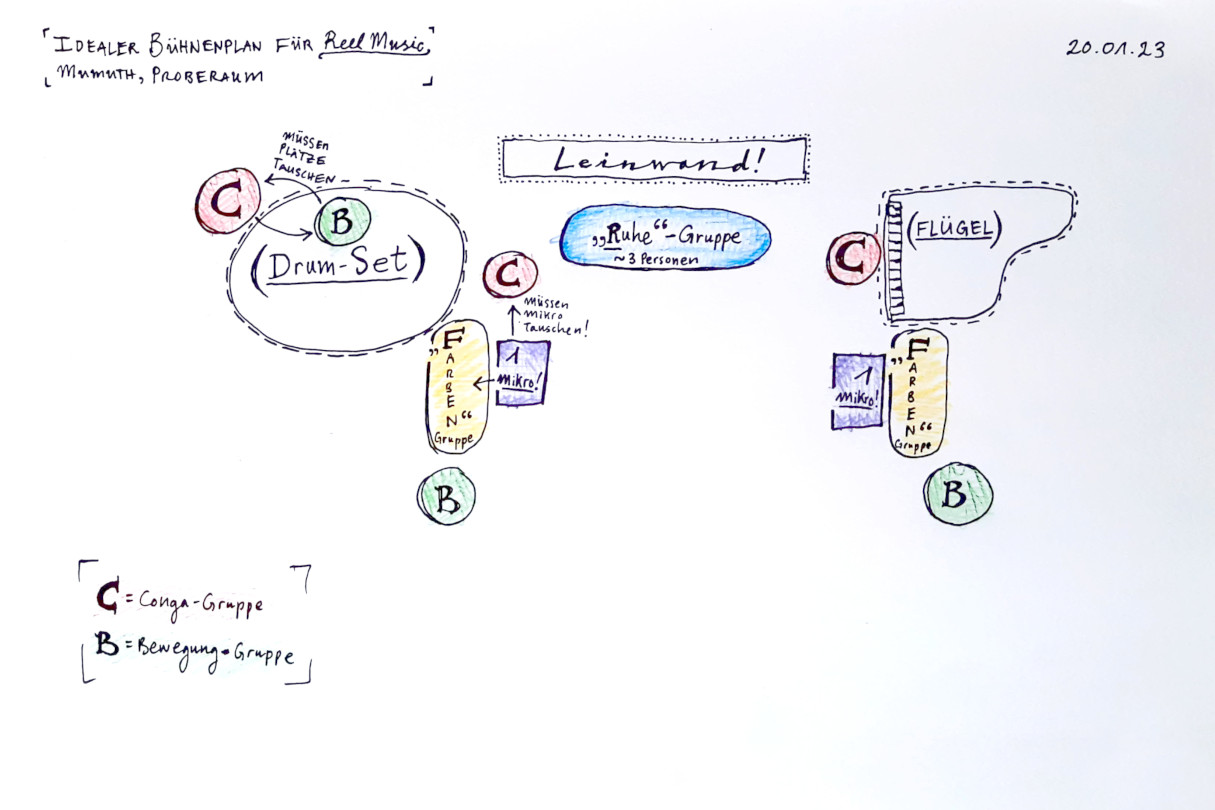 IDEALER BÜHNENPLAN FÜR Reel Music,
MUMUTH, PROBERAUM
20.01.23
MÜSSEN
PLÄTZE
TAUSCHEN
C
B
(Drum-Set)
Leinwand!
„Ruhe“-Gruppe
~3 Personen
C
(FLÜGEL)
C
Müssen
Mikro
Tauschen!
„FARBEN“
Gruppe
1
Mikro!
1
Mikro!
„FARBEN“
Gruppe
B
B
C = Conga-Gruppe
B = Bewegung-Gruppe